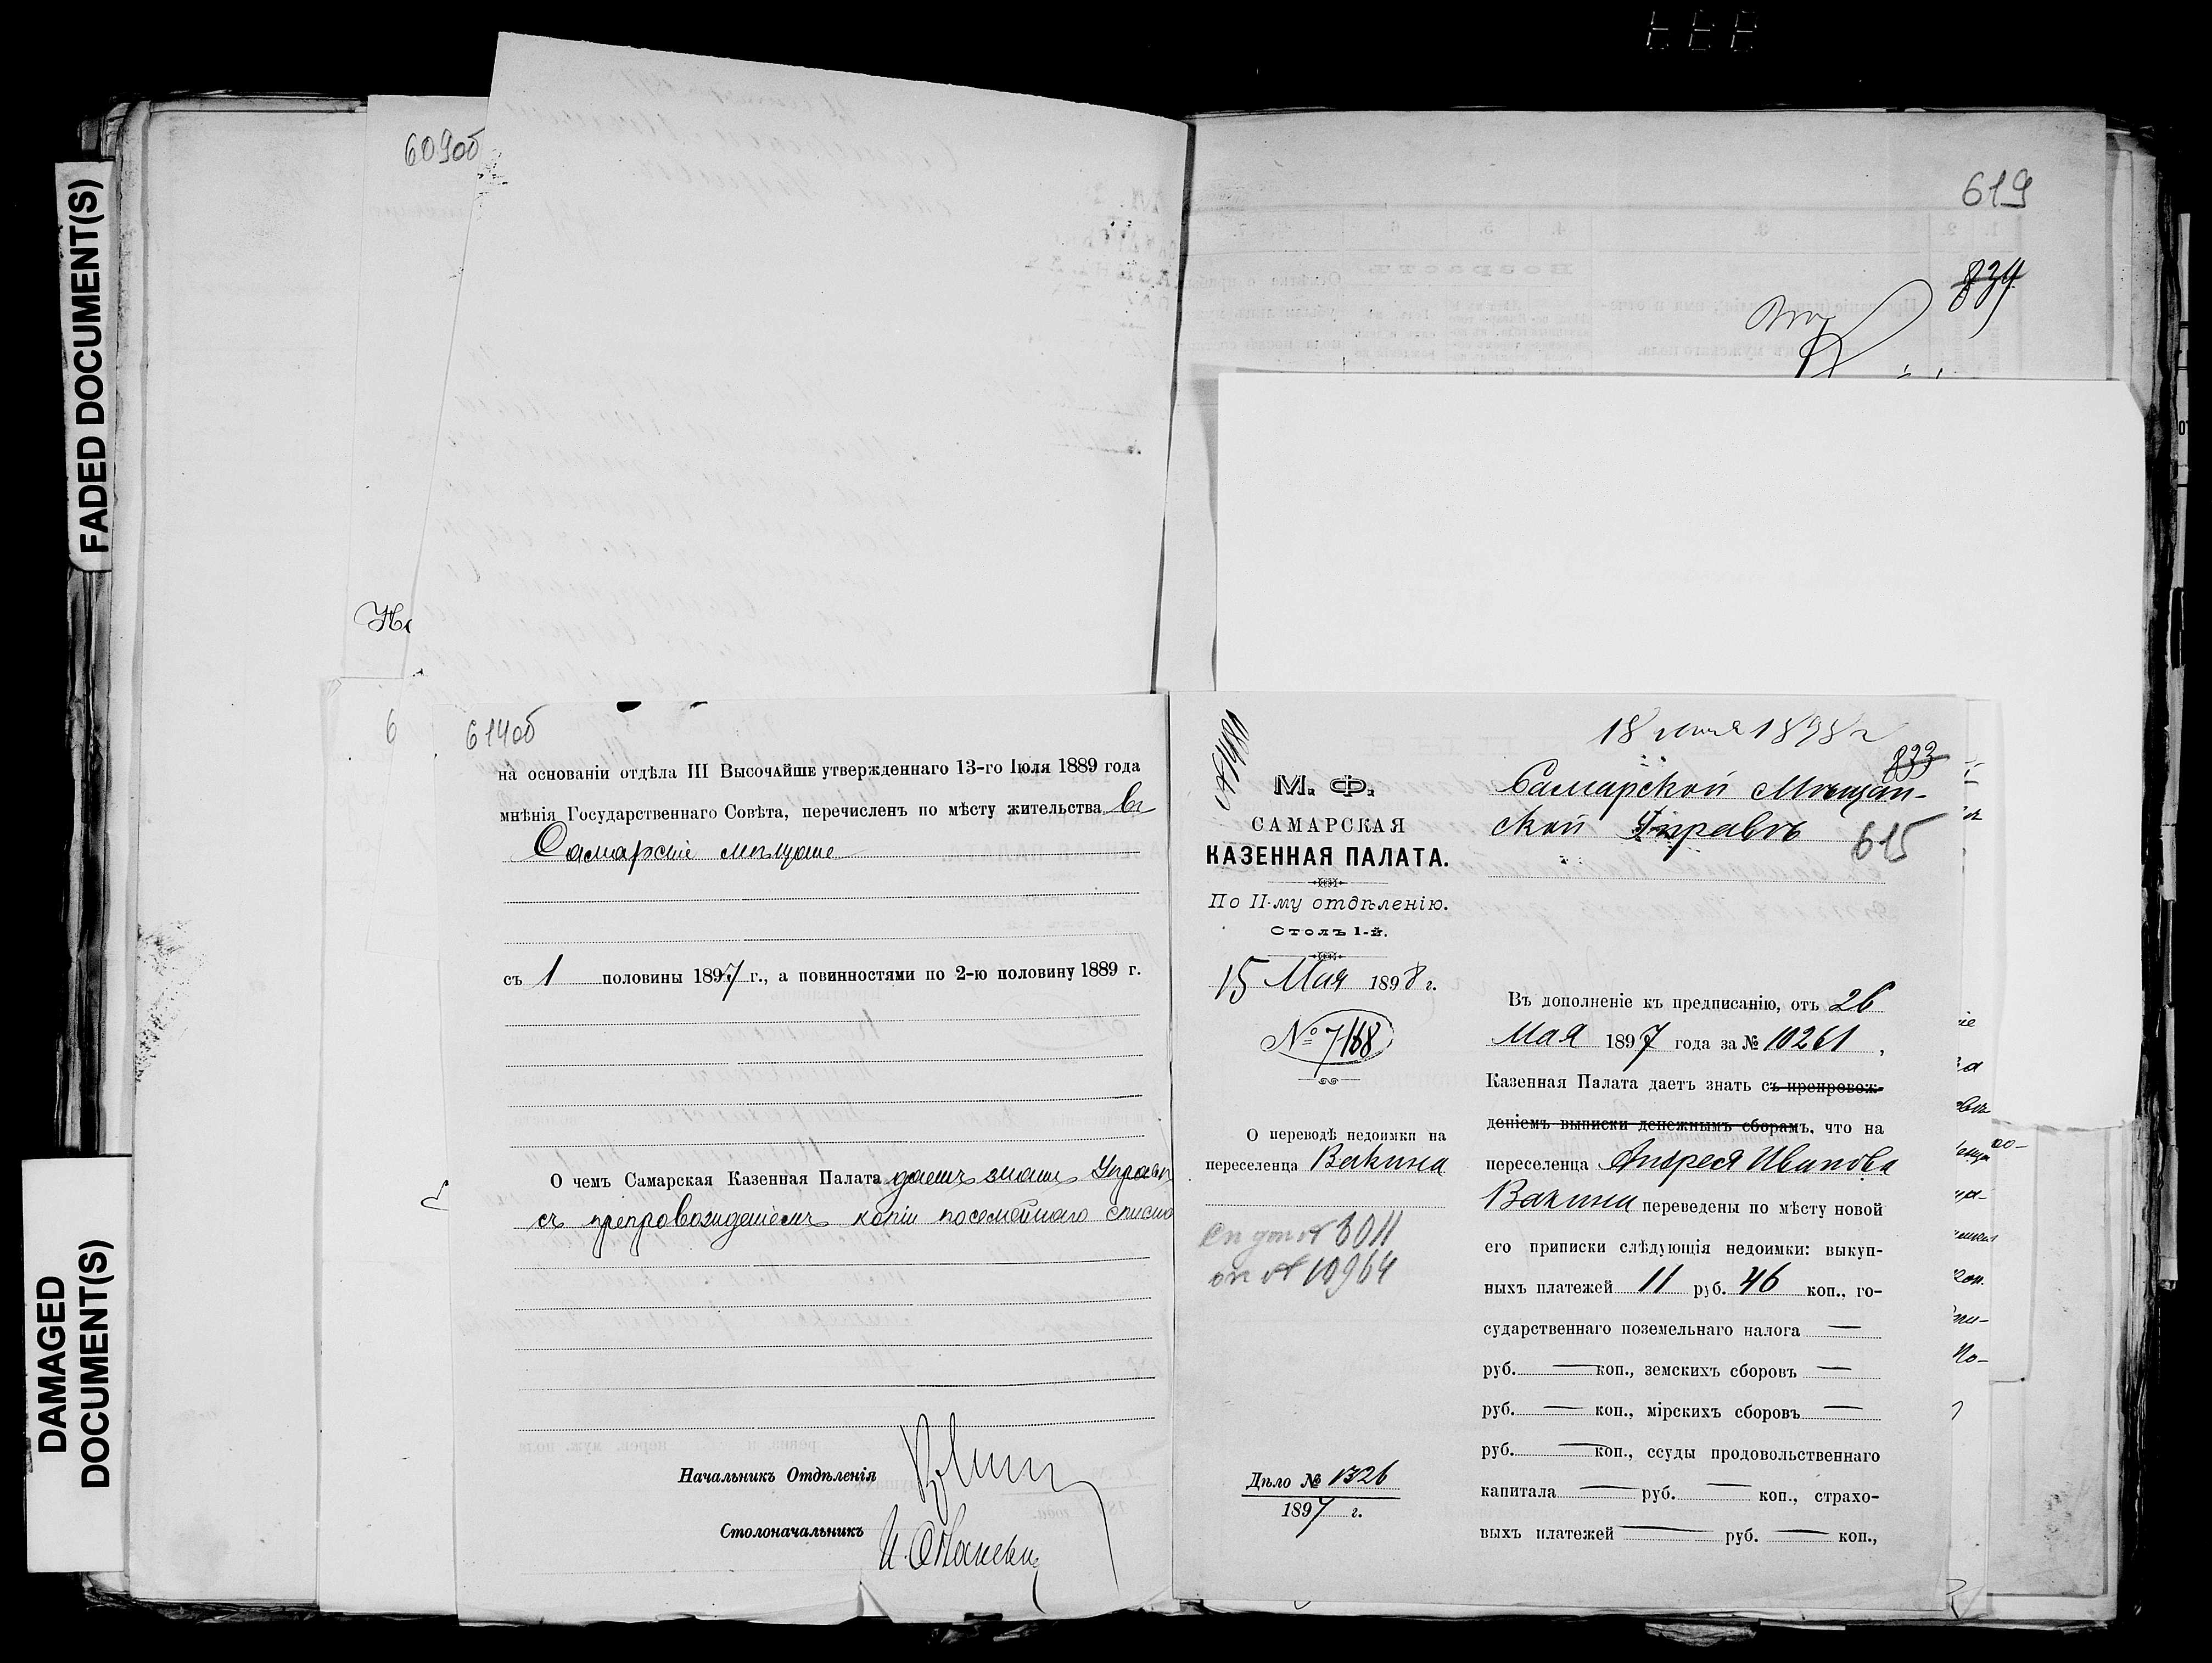 FADED DOCUMENT(S)
DAMAGED
DOCUMENT(S)
609об
614об
на основаніи отдѣла III Высочайше утвержденнаго 13-го Іюля 1889 года
мнѣнія Государственнаго Совѣта, перечисленъ по мѣсту жительства въ
Самарскіе мѣщане
съ 1 половины 1897 г., а повинностями по 2-ю половину 1889 г.
О чемъ Самарская Казенная Палата даетъ знать Управѣ
съ препровожденіемъ копіи посемейнаго списка
Начальникъ Отдѣленія
Столоначальникъ
619
834
18 мая 1898 г
833
М. Ф.
САМАРСКАЯ
КАЗЕННАЯ ПАЛАТА.
По II-му отдѣленію.
Столъ 1-й.
15 Мая 1898 г.
№ 7168
О переводѣ недоимки на
переселенца Вакина
№ 10964
Дѣло № 1326
1897 г.
Самарской Мѣщан-
ской Управѣ
615
Въ дополненіе къ предписанію, отъ 26
Мая 1897 года за № 10261,
Казенная Палата даетъ знать съ препровож-
деніемъ выписки денежнымъ сборамъ, что на
переселенца Андрея Иванова
Вакина переведены по мѣсту новой
его приписки слѣдующія недоимки: выкуп-
ныхъ платежей 11 руб. 46 коп., го-
сударственнаго поземельнаго налога —
руб. — коп., земскихъ сборовъ —
руб. — коп., мірскихъ сборовъ —
руб. — коп., ссуды продовольственнаго
капитала — руб. — коп., страхо-
выхъ платежей — руб. — коп.,